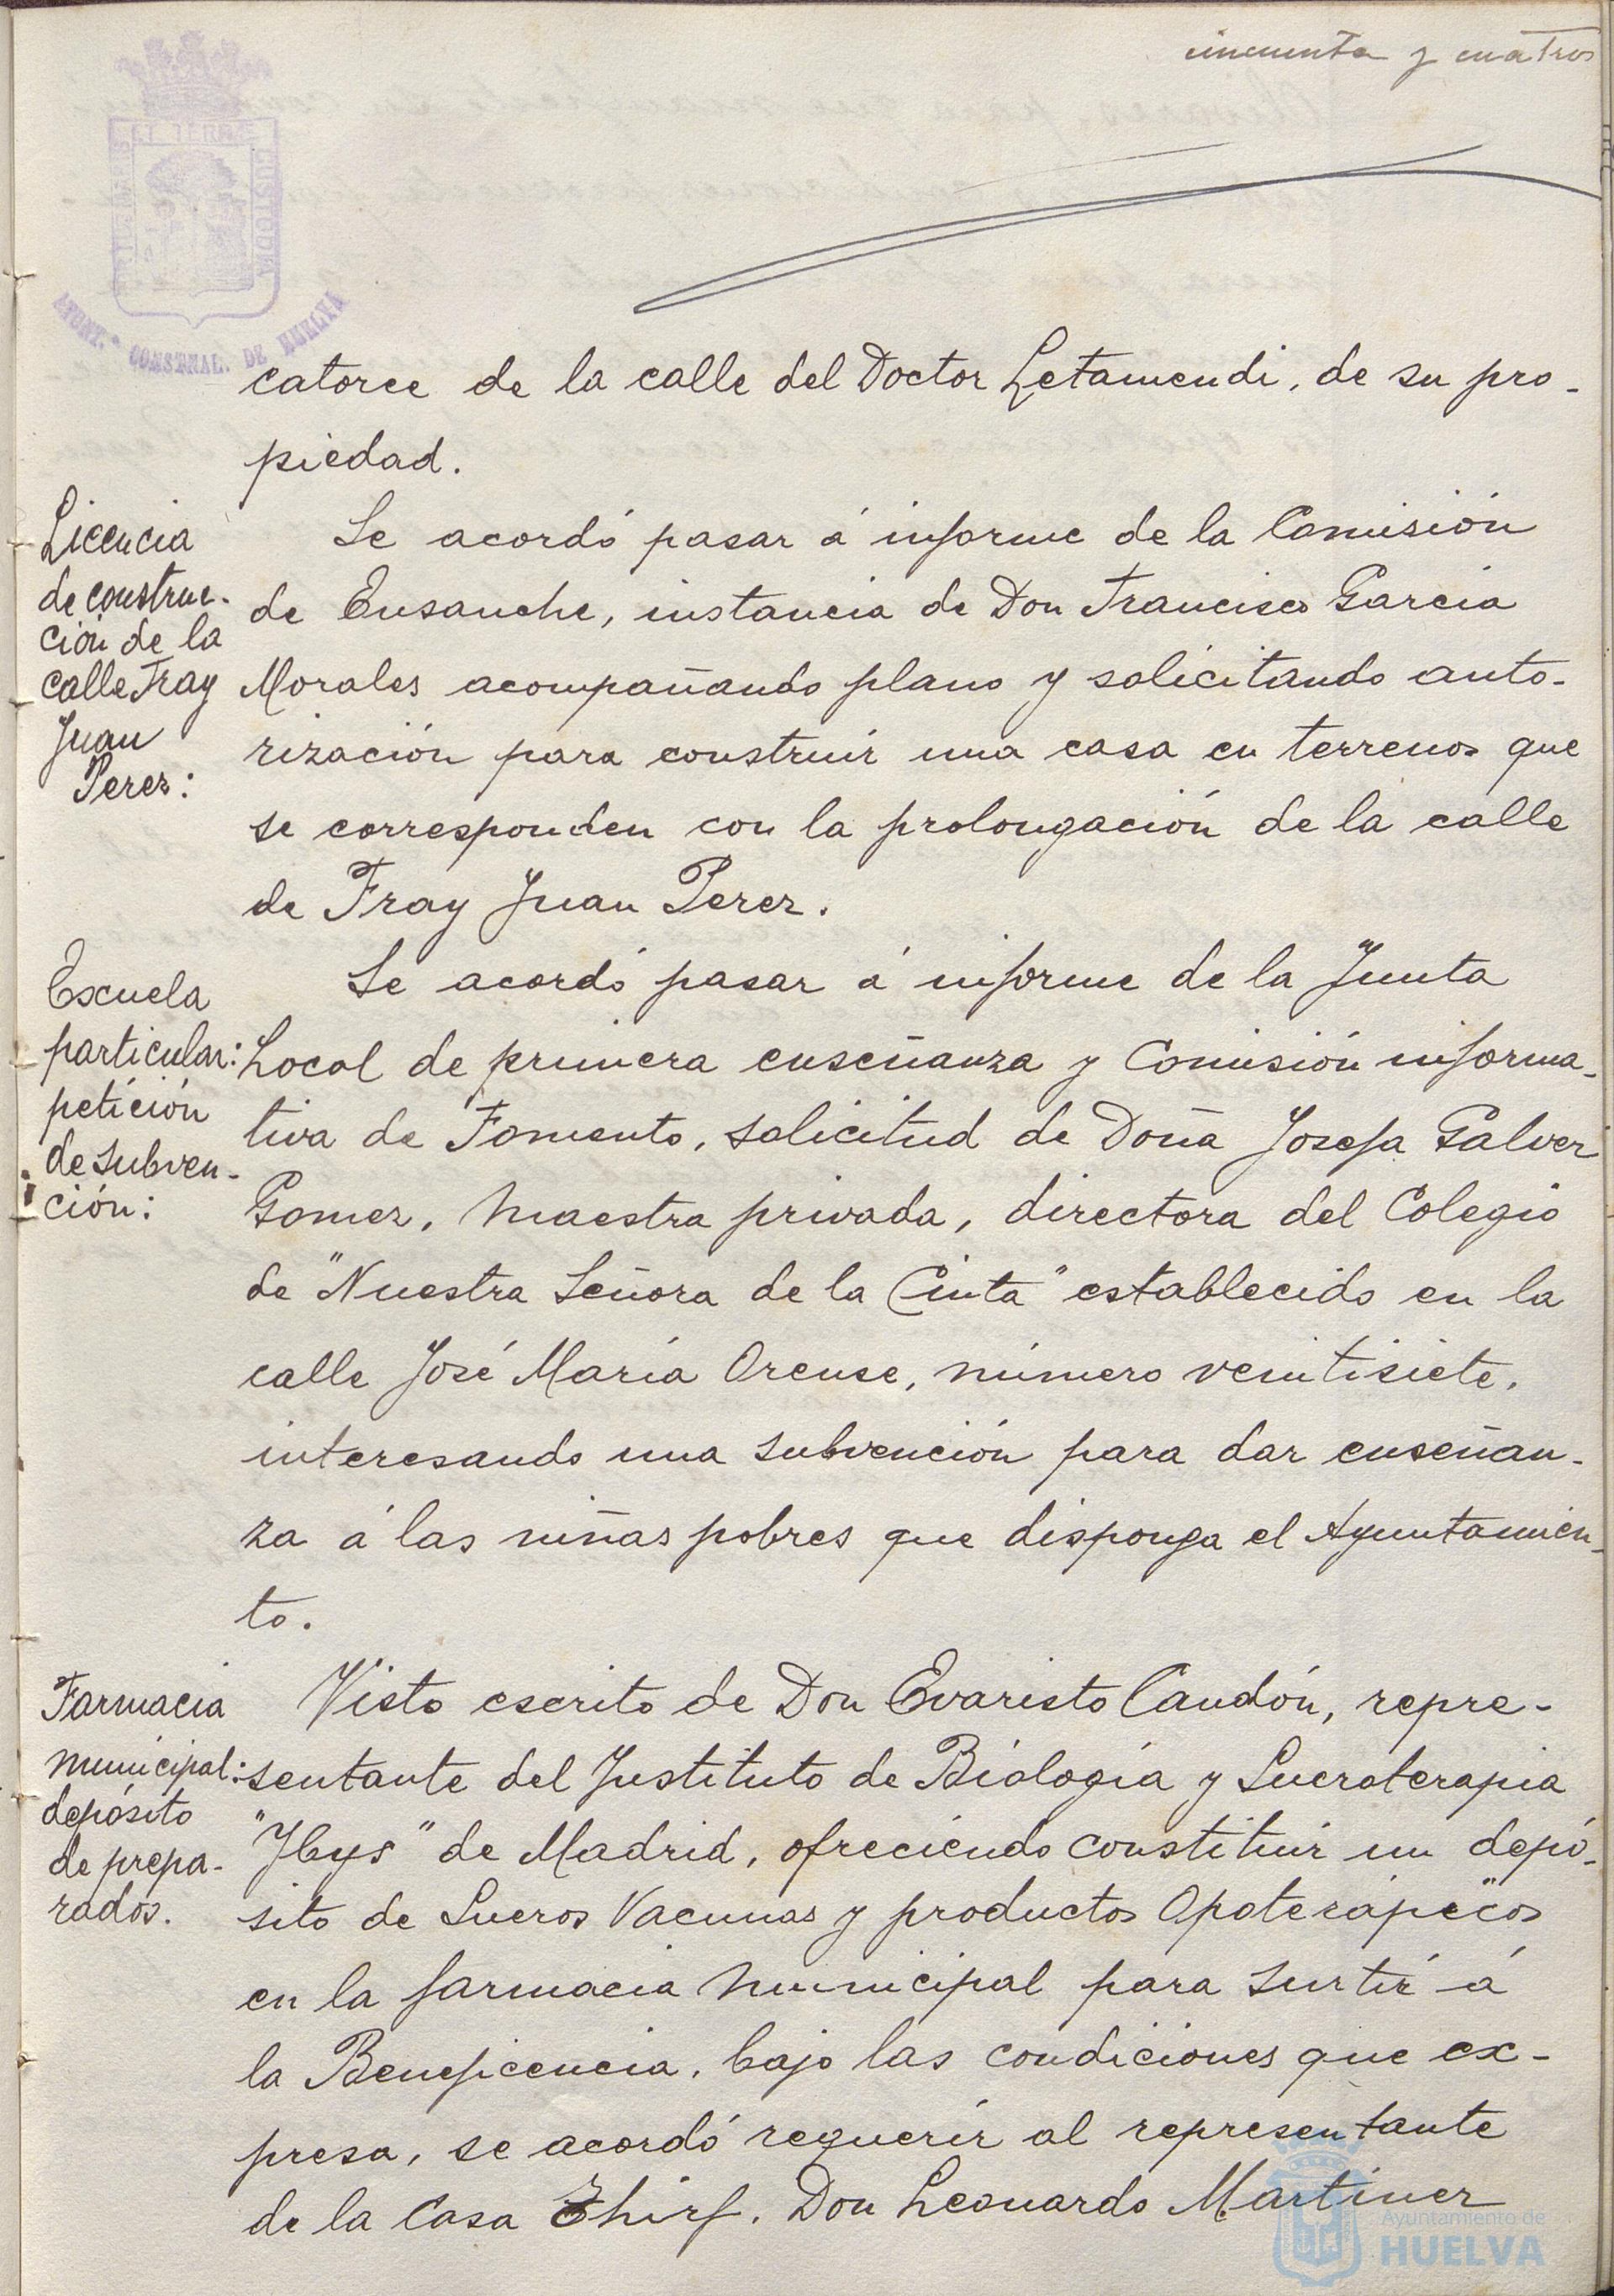 cincuenta y cuatro
AYUNT.º CONSTNAL. DE HUELVA
catorce de la calle del Doctor Letamendi, de su pro-
piedad.
Licencia
de construc-
ción de la
calle Fray
Juan
Perez:
Se acordó pasar á informe de la Comisión
de Ensanche, instancia de Don Francisco Garcia
Morales acompañando plano y solicitando auto-
rización para construir una casa en terrenos que
se corresponden con la prolongación de la calle
de Fray Juan Perez.
Escuela
particular:
petición
de subven-
ción:
Se acordó pasar á informe de la Junta
Local de primera enseñanza y Comisión informa-
tiva de Fomento, solicitud de Doña Josefa Galvez
Gomez, Maestra privada, directora del Colegio
de "Nuestra Señora de la Cinta" establecido en la
calle José María Orense, número veintisiete,
interesando una subvención para dar enseñan-
za á las niñas pobres que disponga el Ayuntamien-
to.
Farmacia
municipal:
depósito
de prepa-
rados.
Visto escrito de Don Evaristo Candón, repre-
sentante del Instituto de Biología y Sueroterapia
"Ibys" de Madrid, ofreciendo constituir un depó-
sito de Sueros Vacunas y productos Opoterápicos
en la farmacia Municipal para surtir á
la Beneficencia, bajo las condiciones que ex-
presa, se acordó requerir al representante
de la Casa Thirf, Don Leonardo Martinez
Ayuntamiento de
HUELVA